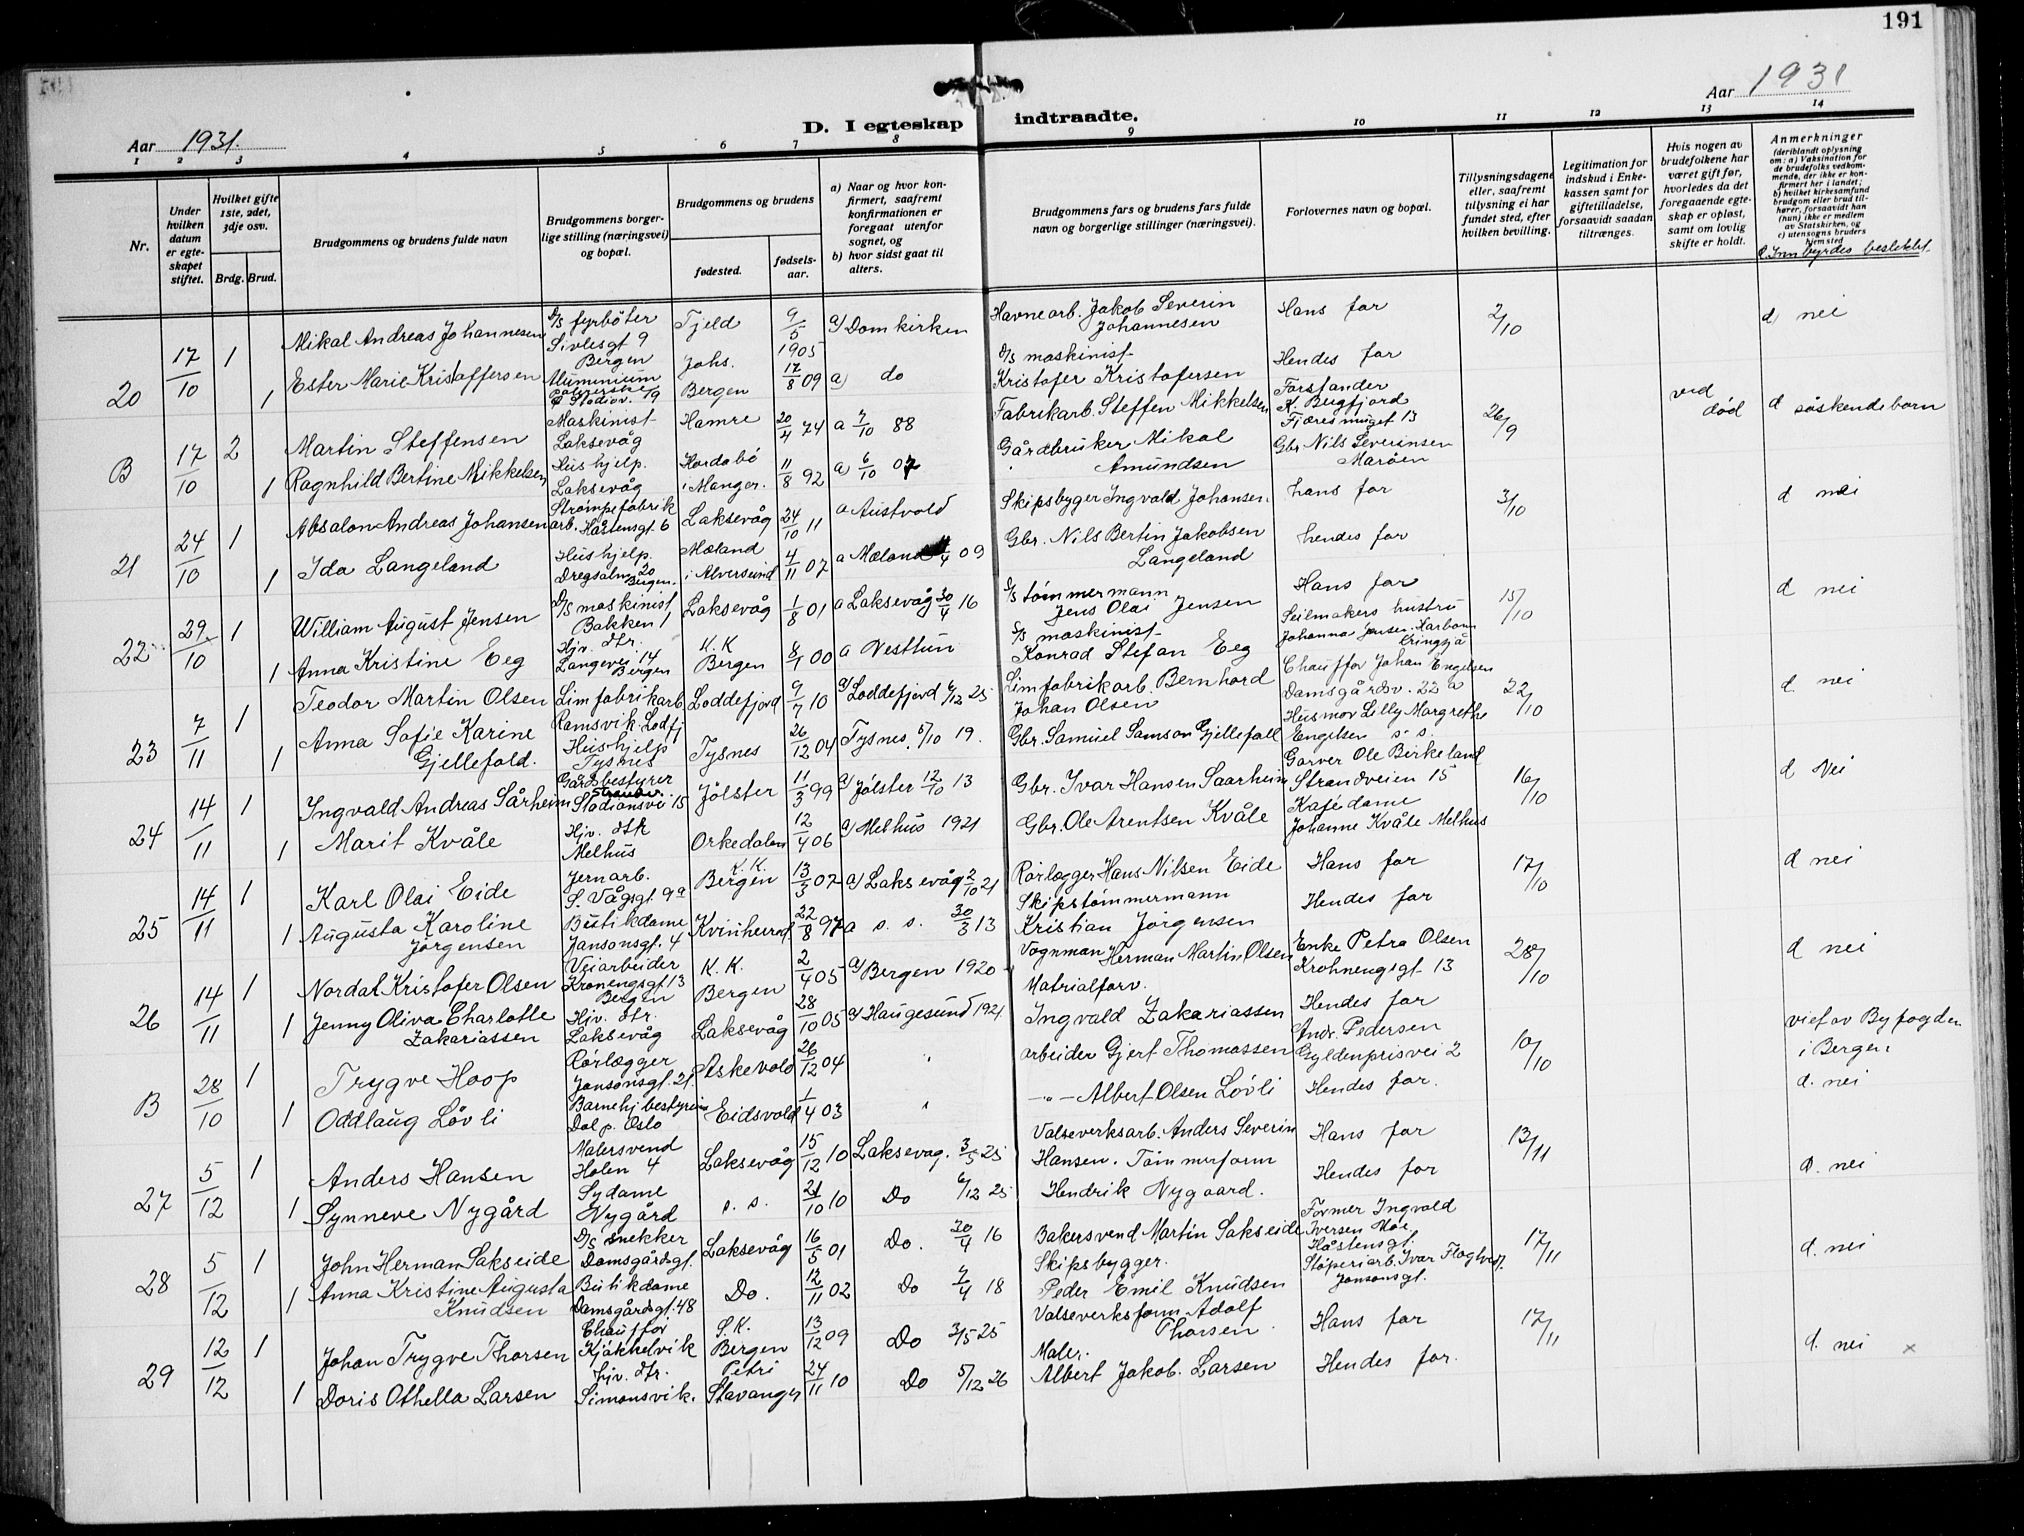 191
Aar 1931.
D. I egteskap indtraadte.
Aar 1931
1 2 3 4 5 6 7 8 9 10 11 12 13 14
Nr.
Under hvilken datum er egteskapet stiftet.
Hvilket gifte 1ste, 2det, 3dje osv.
Brdg. Brud.
Brudgommens og brudens fulde navn
Brudgommens borgerlige stilling (næringsvei) og bopæl.
Brudgommens og brudens
fødested.
fødselsaar.
a) Naar og hvor konfirmert, saafremt konfirmationen er foregaat utenfor sognet, og
b) hvor sidst gaat til alters.
Brudgommens fars og brudens fars fulde navn og borgerlige stillinger (næringsvei).
Forlovernes navn og bopæl.
Tillysningsdagene eller, saafremt tillysning ei har fundet sted, efter hvilken bevilling.
Legitimation for indskud i Enkekassen samt for giftetilladelse, forsaavidt saadan tiltrænges.
Hvis nogen av brudefolkene har været gift før, hvorledes da det foregaaende egteskap er opløst, samt om lovlig skifte er holdt.
Anmerkninger (deriblandt oplysning om: a) Vaksination for de brudefolks vedkommende, der ikke er konfirmert her i landet; b) hvilket kirkesamfund brudgom eller brud tilhører, forsaavidt han (hun) ikke er medlem av Statskirken, og c) utensogns bruders hjemsted
d. Innbyrdes beslektet
20 17/10 1 Mikal Andreas Johannesen D/S fyrbøter Sivlesgt 9 Bergen Fjeld 9/5 1905 a/ Domkirken Havnearb. Jakob Severin Johannesen Hans far 2/10 d) nei
1 Ester Marie Kristoffersen Aluminium Stadionv. 19 Johs. Bergen 17/8 09 a) do D/S maskinist Kristofer Kristofersen Hendes far
B 17/10 2 Martin Steffensen Maskinist Laksevåg Hamre 20/4 74 a 7/10 88 Fabrikarb. Steffen Mikkelsen Forstander K. Bugfjord Fjæresmuget 13 26/9 ved død d søskendebarn
1 Ragnhild Bertine Mikkelsen Hushjelp. Laksevåg Hordabø i Manger. 11/8 92 a) 6/10 07 Gårdbruker Mikal Amundsen Gbr. Nils Severinsen Marøen
21 24/10 1 Absalon Andreas Johansen Strømpefabrik arb. Håstensgt. 6 Laksevåg 24/10 11 a Austvold Skipsbygger Ingvald Johansen. hans far 3/10 d nei
1 Ida Langeland Hushjelp. Dregsalm. 20 Bergen. Mæland i Alversund 4/11 07 a Mæland 09 Gbr. Nils Bertin Jakobsen Langeland hendes far
22 29/10 1 William August Jensen D/S maskinist Bakken 1 Laksevåg 1/8 01 a Laksevåg 30/4 16 S/S tømmermann Jens Olai Jensen Hans far 15/10 d nei
1 Anna Kristine Eeg Hjv. dtr. Langevei 14 Bergen K.K Bergen 8/1 00 a Nesttun S/S maskinist Konrad Stefan Eeg Seilmakers hustru Johanna Jensen. Karbonn
23 7/11 1 Teodor Martin Olsen Limfabrikarb Ramsvik Lodfj Loddefjord 9/7 10 a/ Loddefjord 6/12 25 Limfabrikarb. Bernhard Johan Olsen Chauffør Johan Engelsen Damsgårdsv. 22 a 22/10 d. nei
1 Anna Sofie Karine Gjellefald. Hushjelp Tysnes Tysnes 26/12 04 Tysnes. 5/10 19. Gbr. Samuel Samson Gjellefall Husmor Lilly Margrethe Engelsen s. s.
24 14/11 1 Ingvald Andreas Sårheim Gårdsbestyrer Stadionsvei 15 Jølster 11/3 99 a/ Jølster 12/10 13 Gbr. Ivar Hansen Saarheim Garver Ole Birkeland Strandveien 15 16/10 d Nei
1 Marit Kvåle Hjv. dtk Melhus Orkedalen 12/4 06 a/ Melhus 1921 Gbr. Ole Arentsen Kvåle Kafédame Johanne Kvåle Melhus
25 14/11 1 Karl Olai Eide Jernarb. S. Vågsgt. 9a K.K. Bergen 13/3 07 a) Laksevåg 2/10 21 Rørlægger Hans Nilsen Eide Hans far 17/10 d nei
1 Augusta Karoline Jørgensen Butikdame Jansonsgt. 4 Kvinherrad 22/8 97 a s. s. 30/3 13 Skipstømmermann Kristian Jørgensen Hendes far
26 14/11 1 Nordal Kristofer Olsen Veiarbeider Kronengsgt 13 Bergen K.K. Bergen 2/4 05 a/ Bergen 1920 Vognmann Herman Martin Olsen Enke Petra Olsen Krohnengsgt 13 28/10 d nei
1 Jenny Oliva Charlotte Zakariassen Hjv. dtr. Laksevåg Laksevåg 28/10 05 a/ Haugesund 1921. Matrialforv. Ingvald Zakariassen Hendes far
B 28/10 1 Trygve Hoop Rørlægger Jansonsgt. 21 Askevold 26/12 04 " arbeider Gjert Thomassen Andr. Pedersen Gyldenprisvei 2 10/10 viet av Byfogden i Bergen
1 Oddlaug Løvli Barnehj bestyrerin Dal p. Oslo Eidsvold 1/4 03 " -"- Albert Olsen Løvli Hendes far. d. nei
27 5/12 1 Anders Hansen Malersvend Holen 4 Laksevåg 15/12 10 Laksevåg. 3/5 25 Valseverksarb. Anders Severin Hansen. Hans far 13/11 d. nei
1 Synneve Nygård Sydame Nygård s. s. 21/10 10 Do 6/12 25 Tømmerform Hendrik Nygaard. Hendes far
28 5/12 1 John Herman Sakseide D/S snekker Damsgårdsgt. Laksevåg 16/5 01 Do. 30/4 16 Bakersvend Martin Sakseide Former Ingvald Iversen Moe Håstensgt. 17/11 d. nei
1 Anna Kristine Augusta Knudsen Butikdame Damsgårdsgt. 48 Do. 12/11 02 Do 7/4 18 Skipsbygger. Peder Emil Knudsen Støperiarb. Ivar Flagtvedt Jansonsgt.
29 12/12 1 Johan Trygve Thorsen Chauffør Kjøkkelvik S.K. Bergen 13/12 09 Do 3/5 25 Valseverksform Adolf Thorsen Hans far 17/11 d. nei x
1 Doris Othella Larsen hjv. dtr. Simonsvik. Petri Stavanger 24/11 10 Do 5/12 26 Maler. Albert Jakob Larsen Hendes far.